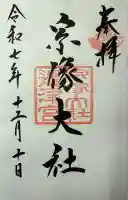 奉拝
宗像大社
令和七年十二月十日